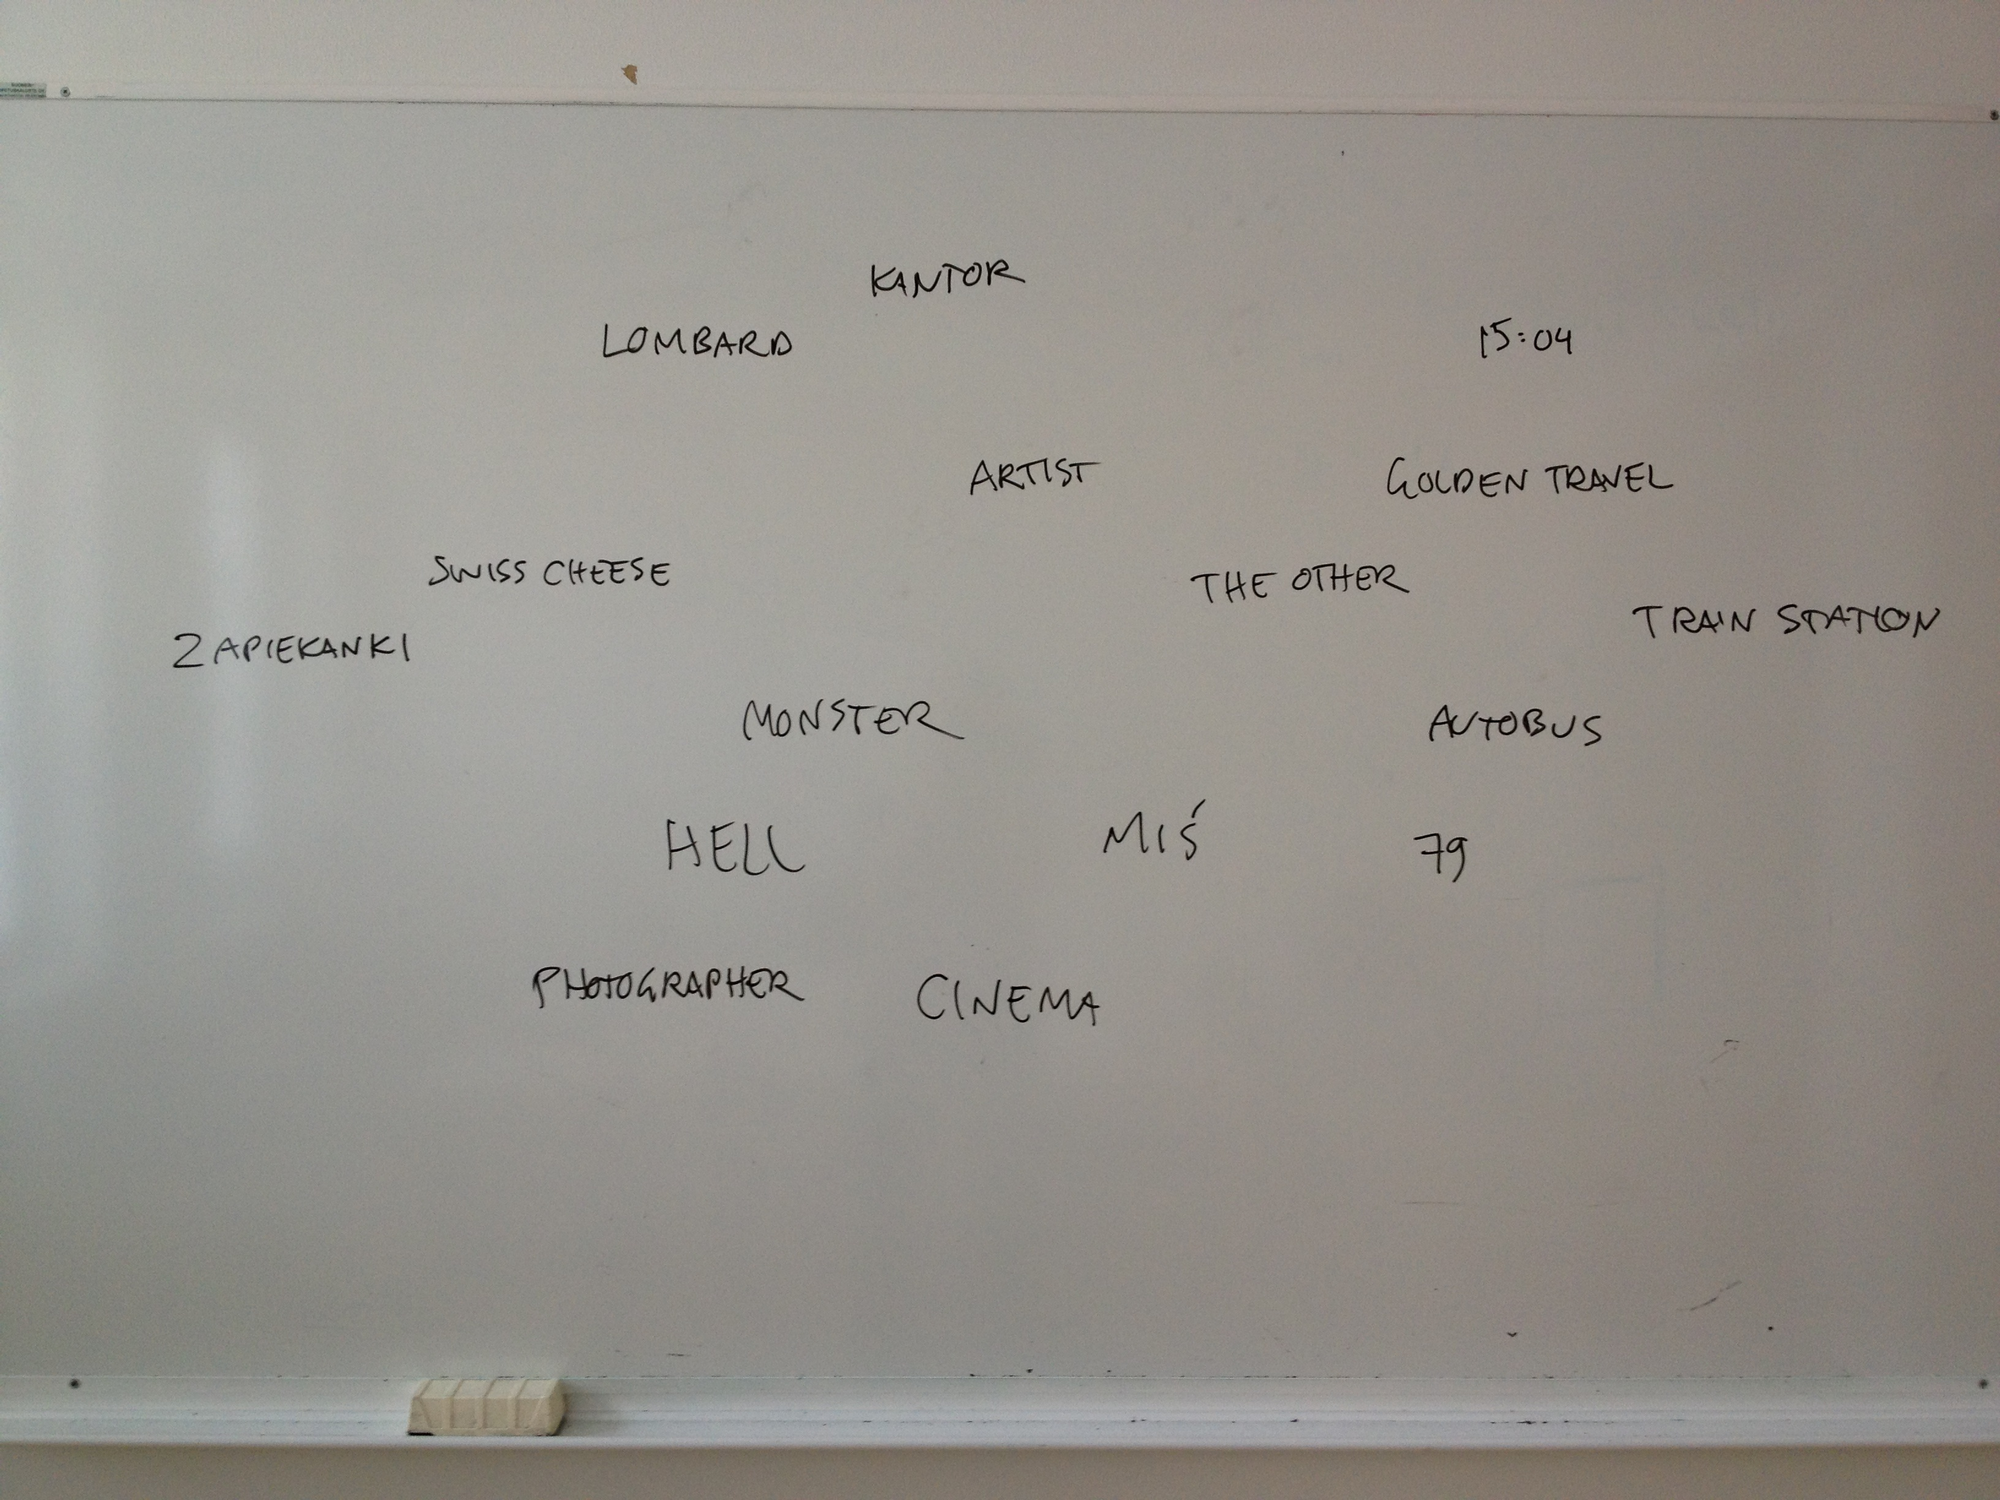 KANTOR
LOMBARD
15:04
ARTIST
GOLDEN TRAVEL
SWISS CHEESE
THE OTHER
TRAIN STATION
ZAPIEKANKI
MONSTER
AUTOBUS
HELL
MIŚ
79
PHOTOGRAPHER
CINEMA